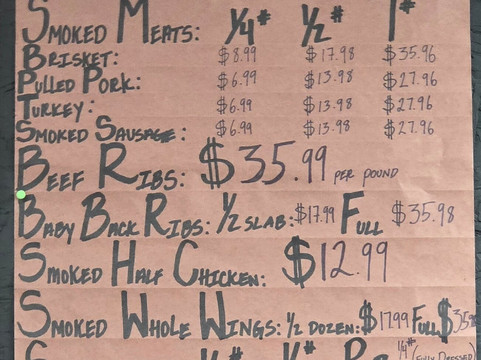 SMOKED MEATS: 1/4# 1/2# 1#
BRISKET: $8.99 $17.98 $35.96
PULLED PORK: $6.99 $13.98 $27.96
TURKEY: $6.99 $13.98 $27.96
SMOKED SAUSAGE: $6.99 $13.98 $27.96
BEEF RIBS: $35.99 PER POUND
BABY BACK RIBS: 1/2 SLAB: $17.99 FULL $35.98
SMOKED HALF CHICKEN: $12.99
SMOKED WHOLE WINGS: 1/2 DOZEN: $17.99 FULL $35
1/4# (FULLY DRESSED)